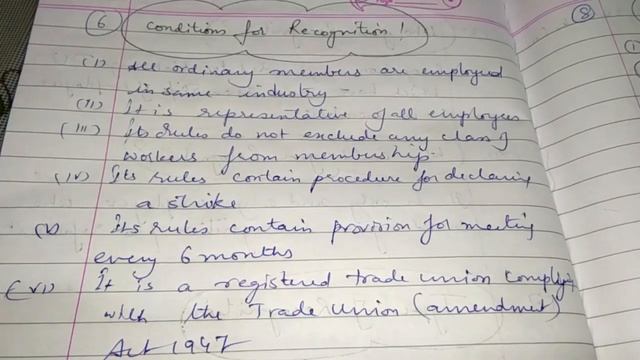 6 Conditions for Recognition!
(i) All ordinary members are employed
in same industry -
(ii) It is representative of all employees
(iii) Its rules do not exclude any class of
workers from membership.
(iv) Its rules contain procedure for declaring
a strike
(v) Its rules contain provision for meeting
every 6 months
(vi) It is a registered trade union complying
with the Trade Union (amendment)
Act 1947
8